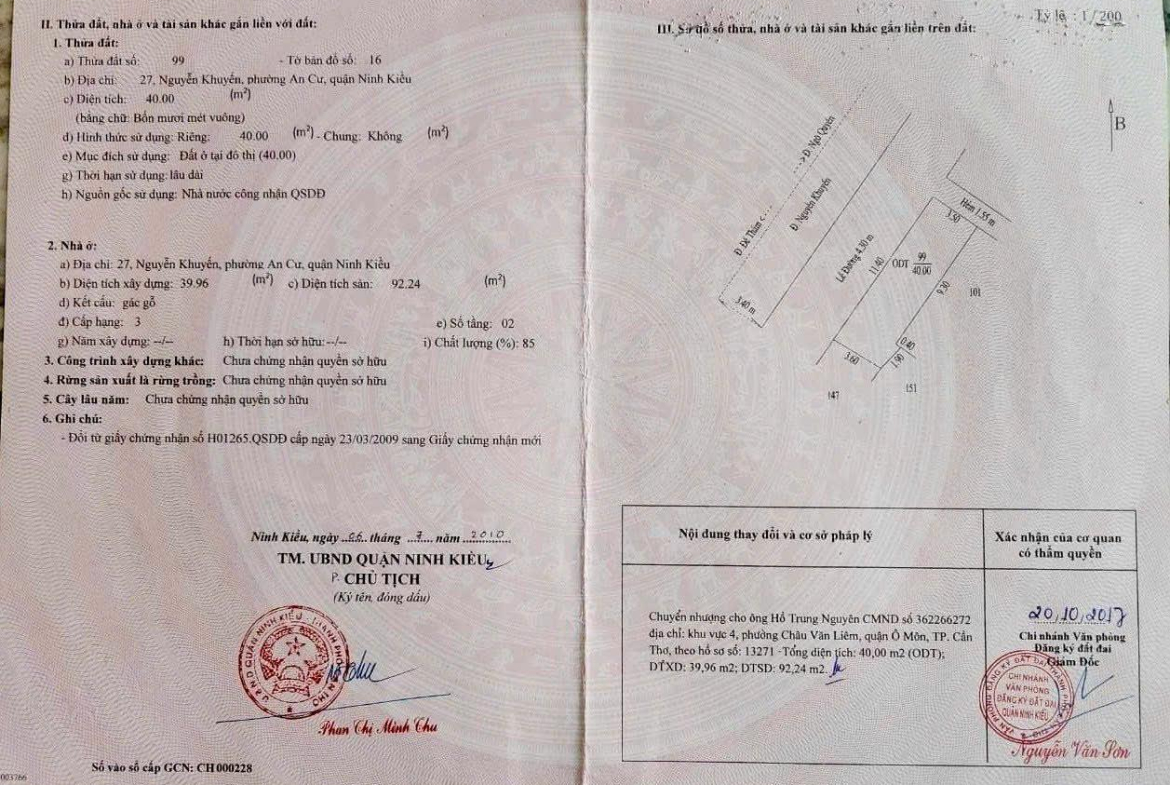 II. Thửa đất, nhà ở và tài sản khác gắn liền với đất:
1. Thửa đất:
a) Thửa đất số: 99 - Tờ bản đồ số: 16
b) Địa chỉ: 27, Nguyễn Khuyến, phường An Cư, quận Ninh Kiều
c) Diện tích: 40.00 (m²)
(bằng chữ: Bốn mươi mét vuông)
d) Hình thức sử dụng: Riêng: 40.00 (m²) - Chung: Không (m²)
e) Mục đích sử dụng: Đất ở tại đô thị (40.00)
g) Thời hạn sử dụng: lâu dài
h) Nguồn gốc sử dụng: Nhà nước công nhận QSDĐ
2. Nhà ở:
a) Địa chỉ: 27, Nguyễn Khuyến, phường An Cư, quận Ninh Kiều
b) Diện tích xây dựng: 39.96 (m²) c) Diện tích sàn: 92.24 (m²)
d) Kết cấu: gác gỗ
đ) Cấp hạng: 3 e) Số tầng: 02
g) Năm xây dựng: --/-- h) Thời hạn sở hữu:--/-- i) Chất lượng (%): 85
3. Công trình xây dựng khác: Chưa chứng nhận quyền sở hữu
4. Rừng sản xuất là rừng trồng: Chưa chứng nhận quyền sở hữu
5. Cây lâu năm: Chưa chứng nhận quyền sở hữu
6. Ghi chú:
- Đổi từ giấy chứng nhận số H01265.QSDĐ cấp ngày 23/03/2009 sang Giấy chứng nhận mới
Ninh Kiều, ngày 06 tháng 7 năm 2010
TM. UBND QUẬN NINH KIỀU
P. CHỦ TỊCH
(Ký tên, đóng dấu)
Phan Chị Minh Thu
Số vào sổ cấp GCN: CH000228
003766
III. Sơ đồ số thửa, nhà ở và tài sản khác gắn liền trên đất:
Tỷ lệ : 1/200
B
---> Đ. Ngô Quyền
Đ. Nguyễn Khuyến
Đ. Đề Thám <---
3.40 m
Lề Đường 4.30 m
Hẻm 1.55 m
3.50
11.40
ODT 99
40.00
9.30
101
0.40
1.90
3.60
147
151
Nội dung thay đổi và cơ sở pháp lý
Xác nhận của cơ quan
có thẩm quyền
Chuyển nhượng cho ông Hồ Trung Nguyên CMND số 362266272
địa chỉ: khu vực 4, phường Châu Văn Liêm, quận Ô Môn, TP. Cần
Thơ, theo hồ sơ số: 13271 -Tổng diện tích: 40,00 m2 (ODT);
DTXD: 39,96 m2; DTSD: 92,24 m2.
20,10,2017
Chi nhánh Văn phòng
Đăng ký đất đai
Giám Đốc
CHI NHÁNH
VĂN PHÒNG
ĐĂNG KÝ ĐẤT ĐAI
QUẬN NINH KIỀU
Nguyễn Văn Sơn